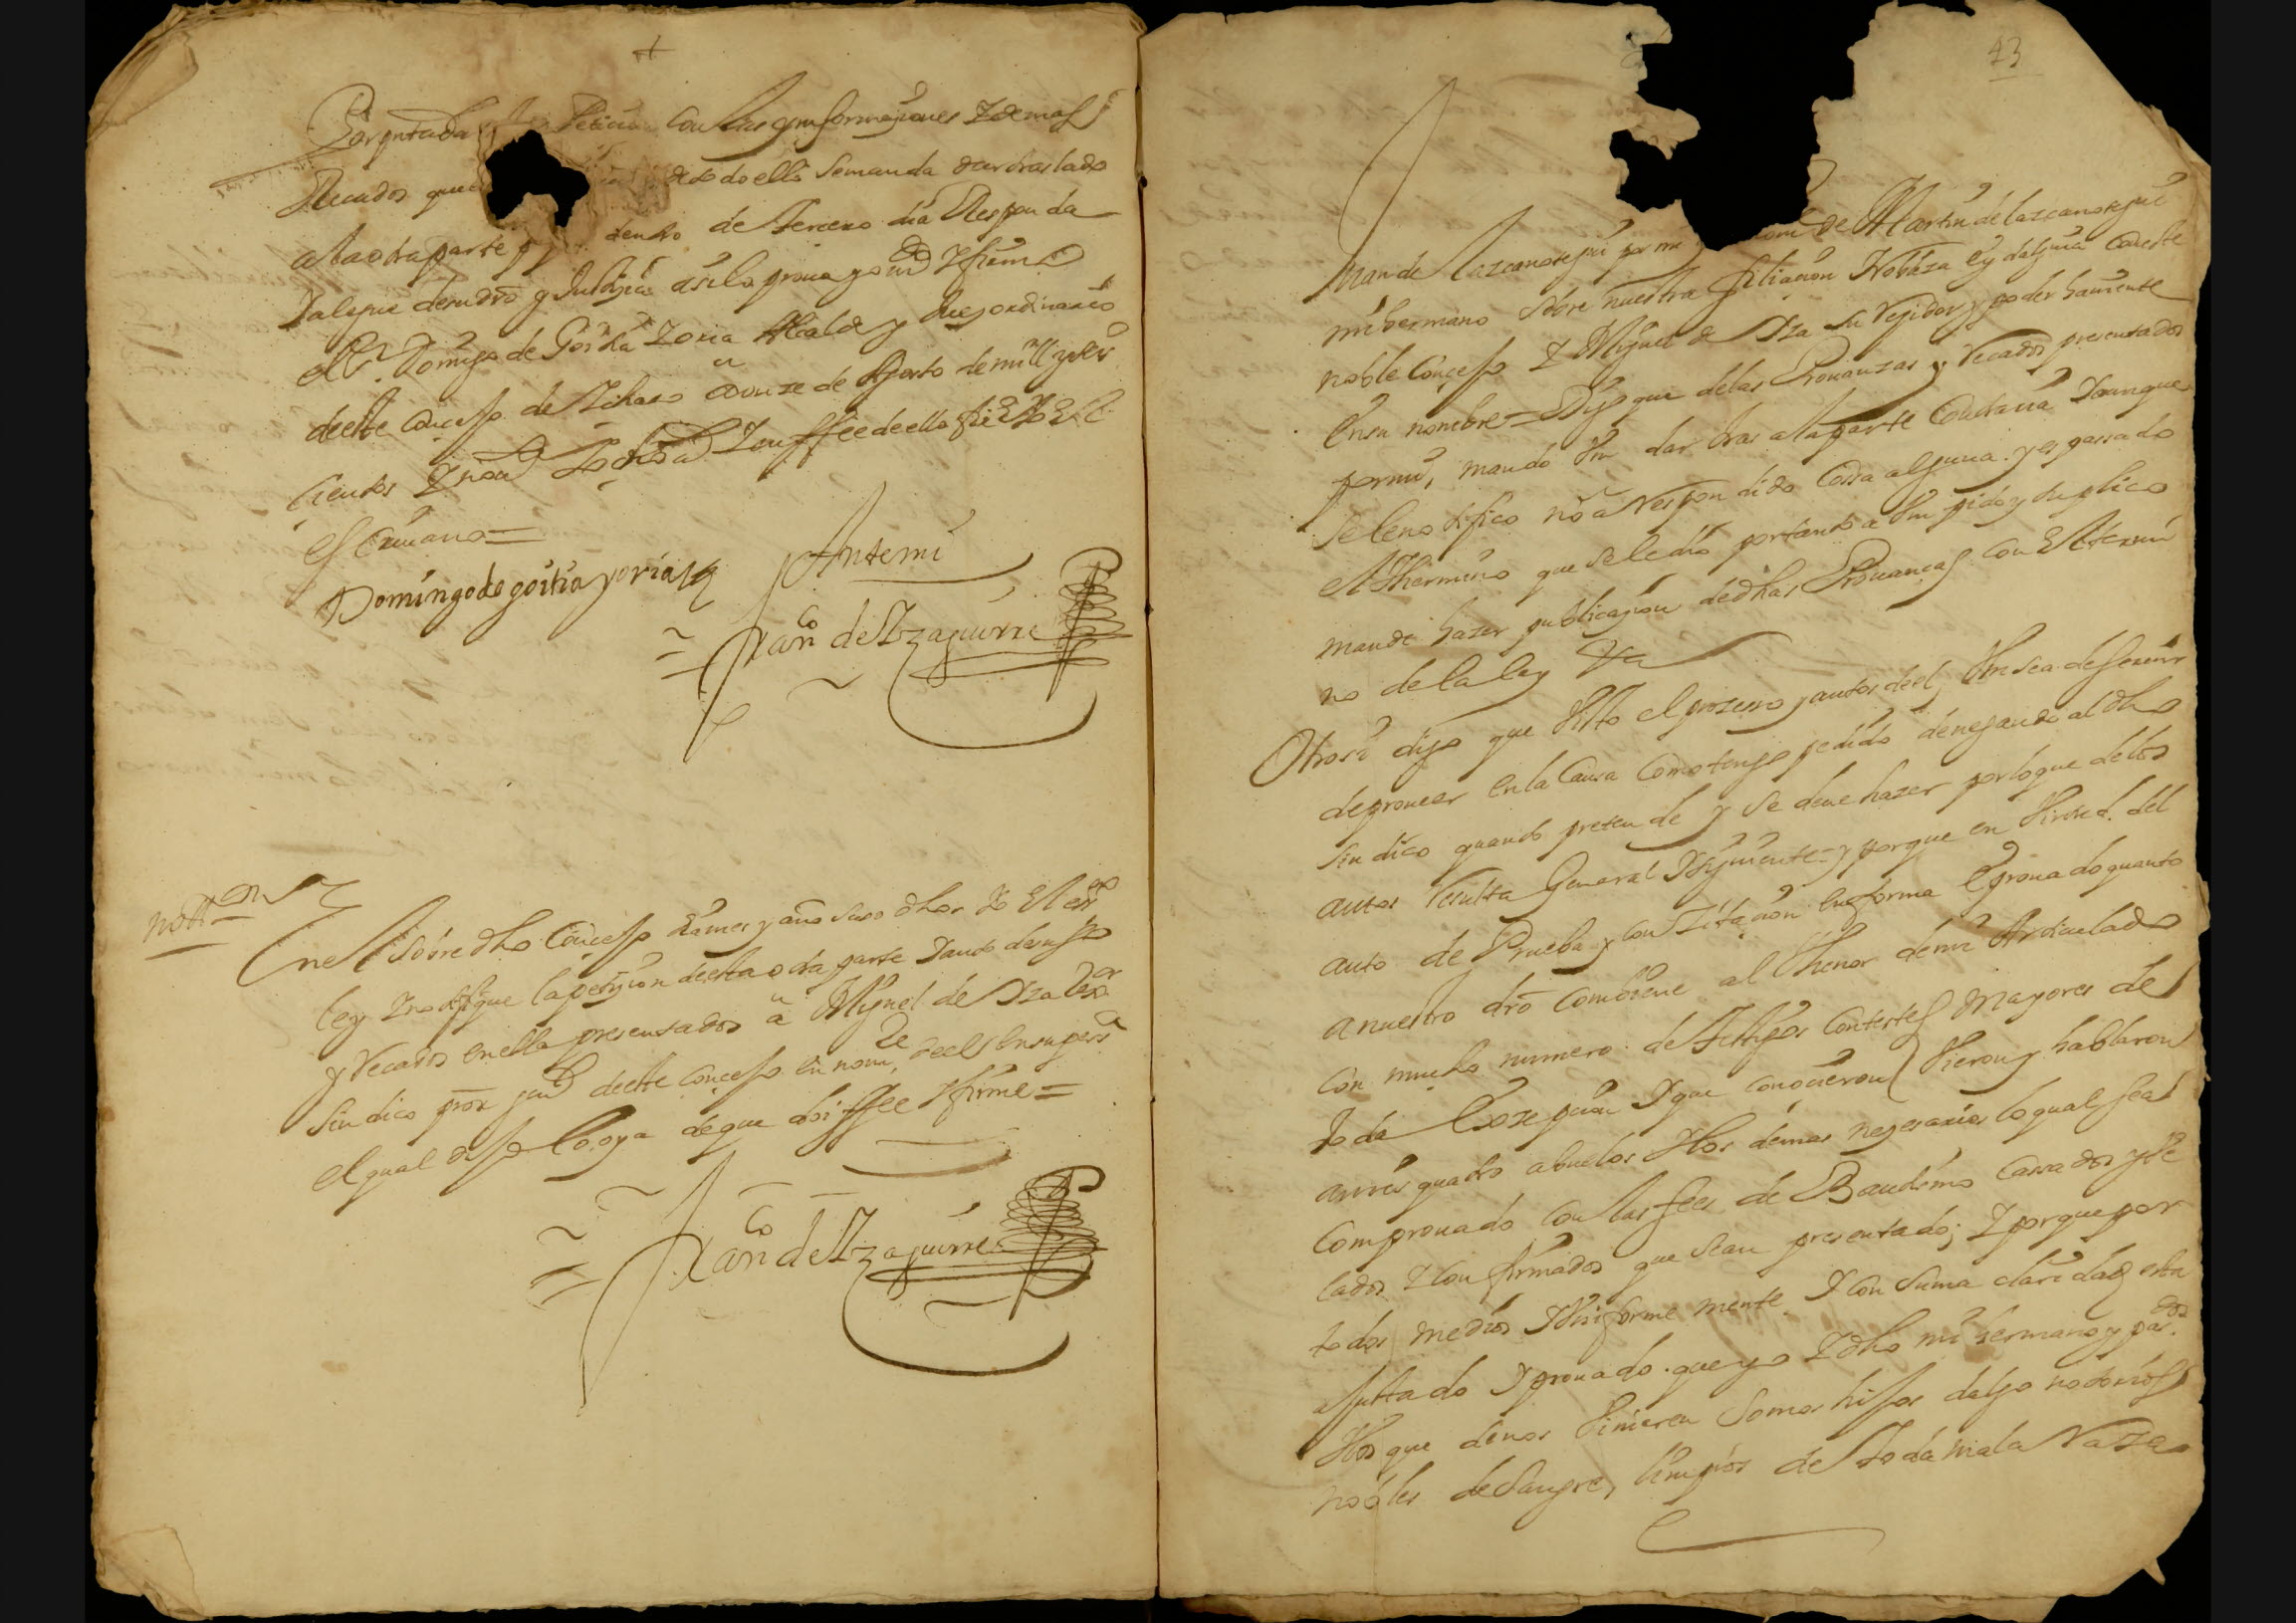 +
Por presentada Peticion con las ynformaçiones y demas
Recados que de todo ello se manda dar traslado
a la otra parte dentro de terçero dia Responda
y alegue de su dro y Justiçia asi lo proueyo md y firmo
el Sr Domingo de Goitia y oria Alcalde y Juez ordinario
deeste Conçejo de a onze de Agosto de mill y seis
çientos y nou y en ffee de ello fize yo el
escriuano =
Domingo de goitia yoria
Ante mi
Franco de Yzaguirre
notton
En el sobre dho Conçejo dia mes y año suso dhos Yo el essno
ley y notifique la petiçion deesta otra parte y auto de suso
y Recados en ella presentados a Miguel de Yza Regor
Sindico pror gen deeste conçejo en nome de el en su persa
el qual dijo lo oya de que doi ffee y firme =
Franco de Yzaguirre
43
Juan de Lazcanotegui por mi y de Martin de lazcanotegui
mi hermano sobre nuestra filiaçion Nobleza e ydalguia con este
noble Conçejo y Miguel de Yza su Regidor y poder hauiente
en su nombre = Digo que de las Prouanzas y Recados presentados
por mi, mando Vm dar tras a la parte Contraria y aunque
se le notifico no a Respondido Cossa alguna y es passado
el thermino que se le dio por tanto a Vm pido y suplico
mande hazer publicaçion de dhas Prouanças con el termi
no de la ley Va
Otrosi digo que Visto el prozesso y autos de el, Vm sea de seruir
de proueer en la Causa como tengo pedido denegando al dho
Sindico quanto pretende y se deue hazer por lo que de los
autos Resulta General y porque en Virtud del
auto de Prueba y con Zitaçion en forma e prouado quanto
a nuestro dro combiene al thenor de mi Articulado
con mucho numero de testigos contestes Mayores de
toda exzepçion y que conoçieron Vieron y hablaron
a mis quatro abuelos y los demas neçesarios lo qual sea
comprouado con las fees de Baudismo Cassados y Ve
lados y confirmados que sean presentado; y porque por
todos medios Vniforme mente y con suma claridad esta
ajustado y prouado que yo y dho mi hermano y pasdos
y los que de nos Vinieren somos hijos dalgo notorios
nobles de sangre, limpios de toda mala Raza